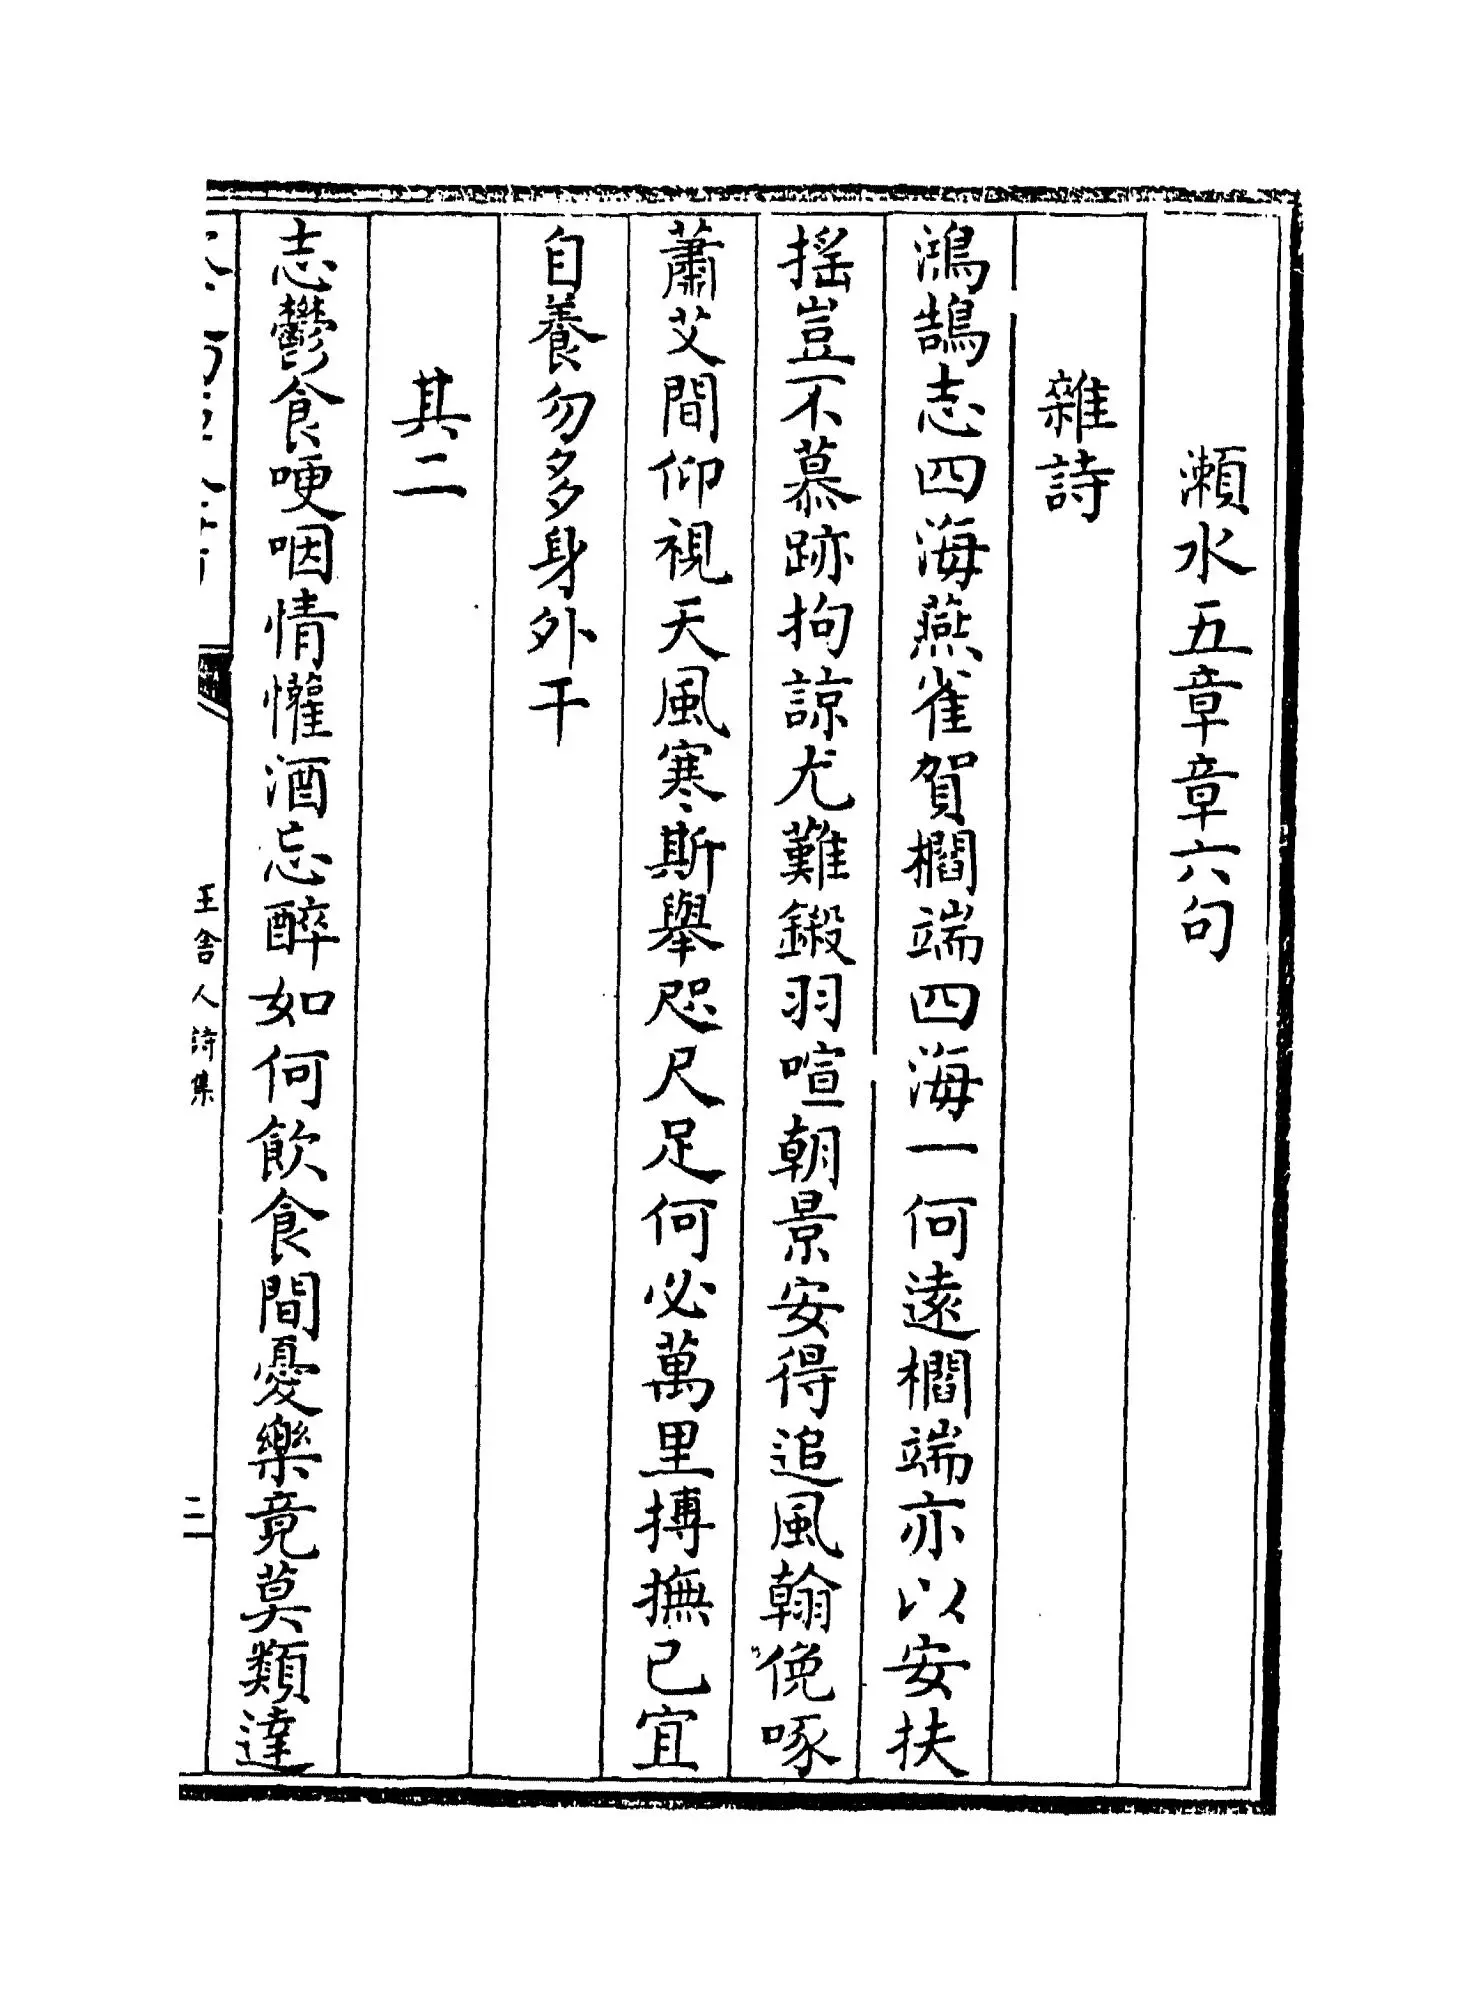 瀬水五章章六句
雜詩
鴻鵠志四海燕雀賀櫚端四海一何遠櫚端亦以安扶
搖豈不慕跡拘諒尤難鎩羽喧朝景安得追風翰俛啄
蕭艾間仰視天風寒斯舉咫尺足何必萬里搏撫已宜
自養勿多身外干
其二
志鬱食哽咽情懽酒忘醉如何飲食間憂樂竟莫類達
王舍人詩集
二